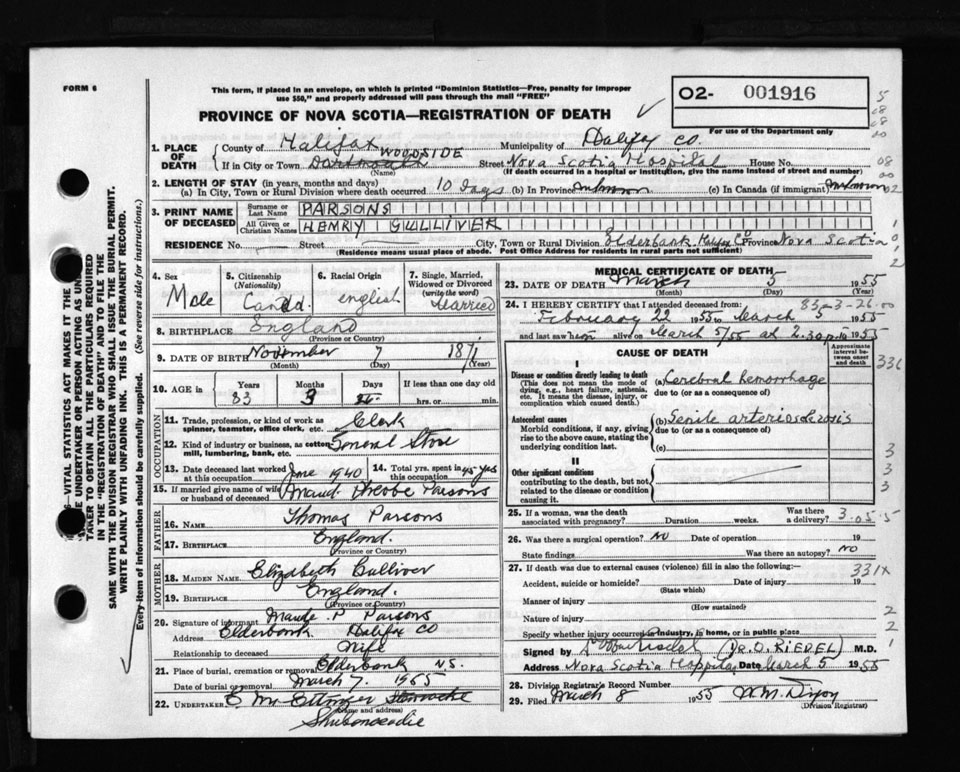 FORM 6
This form, if placed in an envelope, on which is printed "Dominion Statistics—Free, penalty for improper
use $50," and properly addressed will pass through the mail "FREE"
O2- 001916
PROVINCE OF NOVA SCOTIA—REGISTRATION OF DEATH
For use of the Department only
1. PLACE OF DEATH
County of Halifax
Municipality of Halifax Co.
WOODSIDE
If in City or Town Dartmouth Street Nova Scotia Hospital House No.
(Name) (If death occurred in a hospital or institution, give the name instead of street and number)
2. LENGTH OF STAY (in years, months and days)
(a) In City, Town or Rural Division where death occurred 10 days (b) In Province unknown (c) In Canada (if immigrant) unknown
3. PRINT NAME OF DECEASED
Surname or Last Name PARSONS
All Given or Christian Names HENRY GULLIVER
RESIDENCE No. Street City, Town or Rural Division Elderbank Halifax Co Province Nova Scotia
(Residence means usual place of abode. Post Office Address for residents in rural parts not sufficient)
4. Sex Male
5. Citizenship (Nationality) Canad.
6. Racial Origin english
7. Single, Married, Widowed or Divorced (write the word) Married
8. BIRTHPLACE England
(Province or Country)
9. DATE OF BIRTH November 7 1871
(Month) (Day) (Year)
10. AGE in Years Months Days If less than one day old
83 3 hrs. or min.
OCCUPATION
11. Trade, profession, or kind of work as spinner, teamster, office clerk, etc. Clerk
12. Kind of industry or business, as cotton mill, lumbering, bank, etc. General Store
13. Date deceased last worked at this occupation June 1940
14. Total yrs. spent in this occupation 45 yes
15. If married give name of wife or husband of deceased Maud Pheobe Parsons
FATHER
16. NAME Thomas Parsons
17. BIRTHPLACE England.
(Province or Country)
MOTHER
18. MAIDEN NAME Elizabeth Gulliver
19. BIRTHPLACE England.
(Province or Country)
20. Signature of informant Maude P Parsons
Address Elderbank Halifax CO
Relationship to deceased Wife
21. Place of burial, cremation or removal Elderbank NS.
Date of burial or removal March 7. 1955
22. UNDERTAKER E Mc Ettinger
(Name and address)
Shubenacadie
MEDICAL CERTIFICATE OF DEATH
23. DATE OF DEATH March 5 1955
(Month) (Day) (Year)
83-3-26-00
24. I HEREBY CERTIFY that I attended deceased from:
February 22 1955 to March 5 1955
and last saw him alive on March 5/55 at 2.30 p.m 1955
CAUSE OF DEATH
Approximate interval between onset and death
I
Disease or condition directly leading to death
(This does not mean the mode of dying, e.g., heart failure, asthenia, etc. It means the disease, injury, or complication which caused death.)
(a) Cerebral hemorrhage
due to (or as a consequence of)
Antecedent causes
Morbid conditions, if any, giving rise to the above cause, stating the underlying condition last.
(b) Senile arteriosclerosis
due to (or as a consequence of)
(c)
II
Other significant conditions
contributing to the death, but not related to the disease or condition causing it.
25. If a woman, was the death associated with pregnancy? Duration weeks. Was there a delivery? 3-05-5
26. Was there a surgical operation? NO Date of operation 19
State findings Was there an autopsy? NO
27. If death was due to external causes (violence) fill in also the following:— 331X
Accident, suicide or homicide? Date of injury 19
(State which)
Manner of injury
(How sustained)
Nature of injury
Specify whether injury occurred in industry, in home, or in public place
Signed by (DR. O. RIEDEL) M.D.
Address Nova Scotia Hospital Date March 5 1955
28. Division Registrar's Record Number
29. Filed March 8 1955 W.M. Dixon
(Division Registrar)
VITAL STATISTICS ACT MAKES IT THE
UNDERTAKER OR PERSON ACTING AS UNDER
TAKER TO OBTAIN ALL THE PARTICULARS REQUIRED
IN THE "REGISTRATION OF DEATH" AND TO FILE THE
SAME WITH THE DIVISION REGISTRAR WHO SHALL ISSUE THE BURIAL PERMIT.
WRITE PLAINLY WITH UNFADING INK. THIS IS A PERMANENT RECORD.
Every item of information should be carefully supplied. (See reverse side for instructions.)